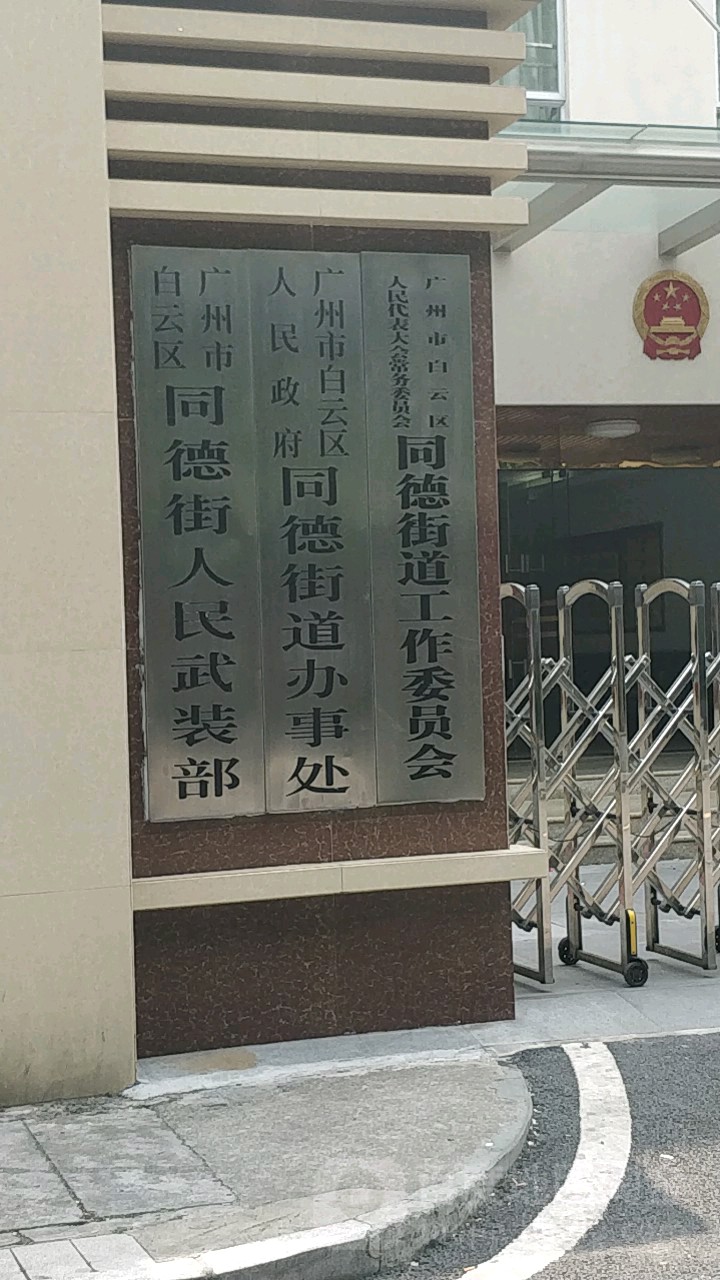 广州市白云区
人民代表大会常务委员会
同德街道工作委员会
广州市白云区
人民政府
同德街道办事处
广州市
白云区
同德街人民武装部